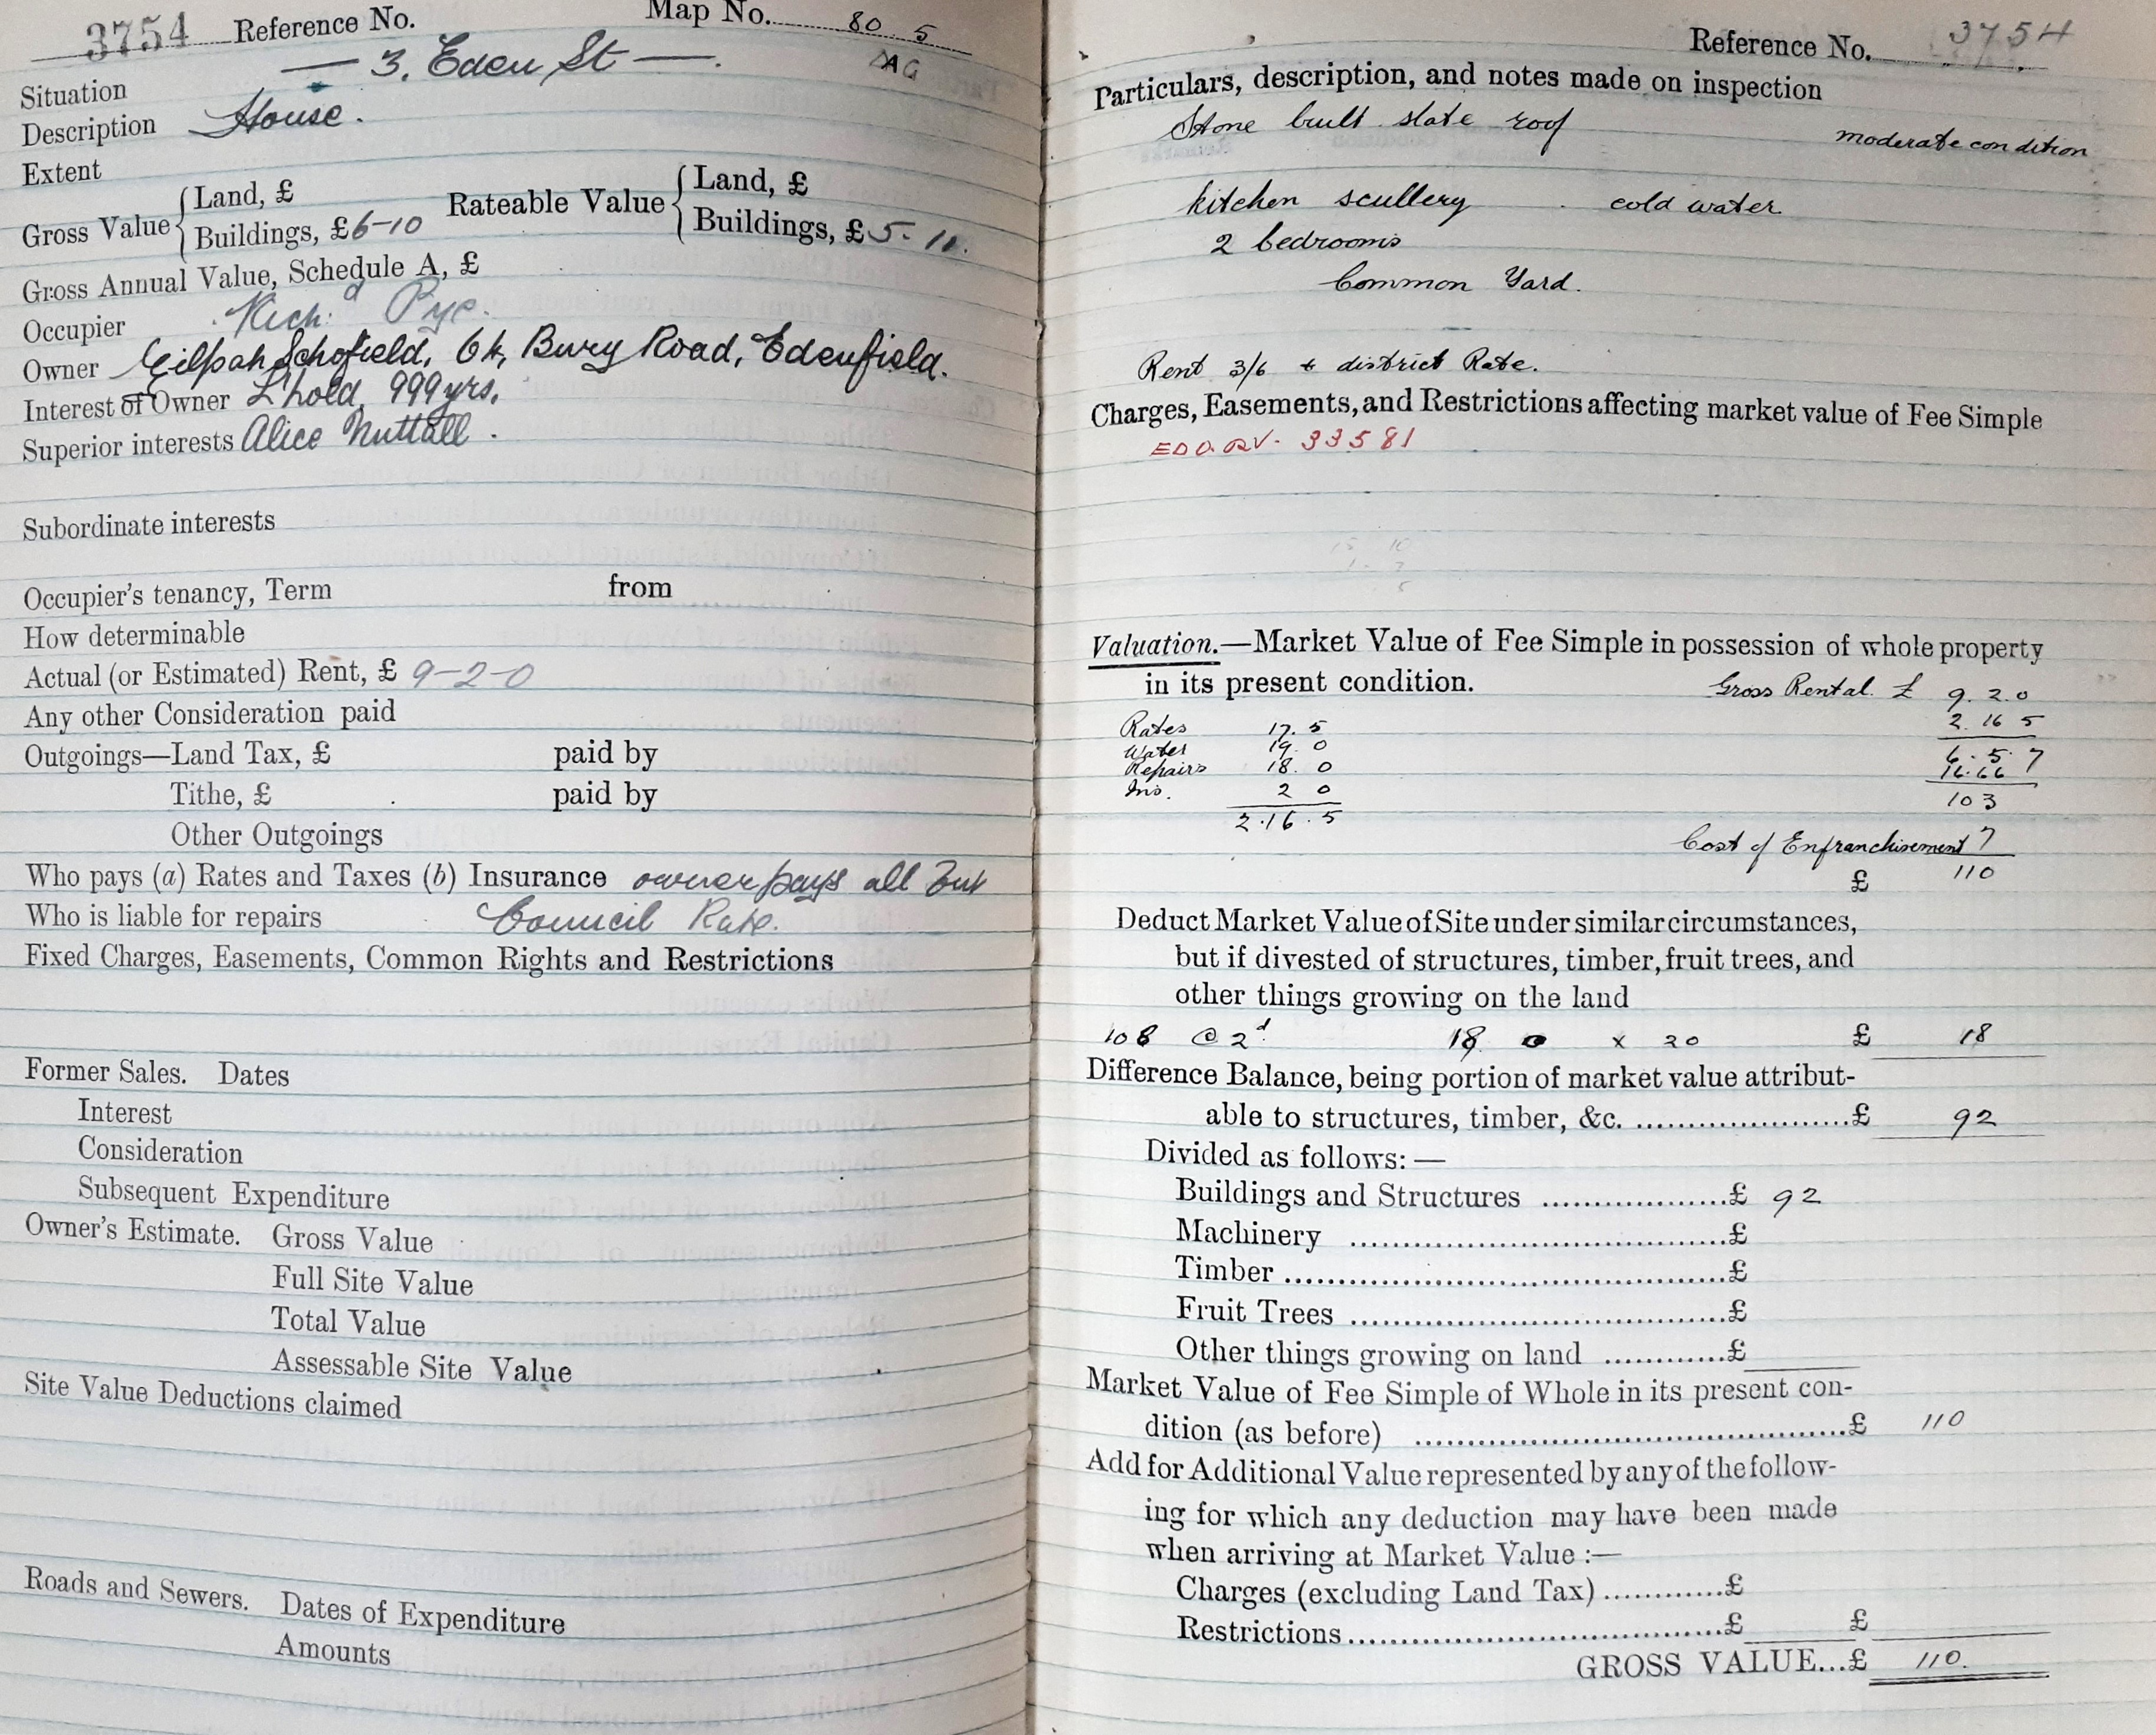 3754 Reference No. Map No. 80 5
Situation — 3, Eden St —.
Description House.
Extent
Gross Value { Land, £ Rateable Value { Land, £
Buildings, £6-10 Buildings, £5-10.
Gross Annual Value, Schedule A, £
Occupier Rich:d Pye.
Owner Schofield, 64, Bury Road, Edenfield.
Interest of Owner L'hold, 999yrs.
Superior interests Alice Nuttall.
Subordinate interests
Occupier's tenancy, Term from
How determinable
Actual (or Estimated) Rent, £ 9-2-0
Any other Consideration paid
Outgoings—Land Tax, £ paid by
Tithe, £ paid by
Other Outgoings
Who pays (a) Rates and Taxes (b) Insurance owner pays all but
Who is liable for repairs Council Rate.
Fixed Charges, Easements, Common Rights and Restrictions
Former Sales. Dates
Interest
Consideration
Subsequent Expenditure
Owner's Estimate. Gross Value
Full Site Value
Total Value
Assessable Site Value
Site Value Deductions claimed
Roads and Sewers. Dates of Expenditure
Amounts
Reference No. 3754
Particulars, description, and notes made on inspection
Stone built slate roof moderate condition
kitchen scullery cold water
2 bedrooms
Common Yard.
Rent 3/6 + district Rate.
Charges, Easements, and Restrictions affecting market value of Fee Simple
33581
Valuation.—Market Value of Fee Simple in possession of whole property
in its present condition. Gross Rental £ 9. 2. 0
Rates 17. 5 2 16 5
Water 19. 0 6. 5. 7
Repairs 18. 0 16.66
Ins. 2 0 103
2.16.5
Cost of Enfranchisement 7
£ 110
Deduct Market Value of Site under similar circumstances,
but if divested of structures, timber, fruit trees, and
other things growing on the land
108 @ 2d 18 0 x 20 £ 18
Difference Balance, being portion of market value attribut-
able to structures, timber, &c. ......................£ 92
Divided as follows:—
Buildings and Structures ...................£ 92
Machinery ......................................£
Timber .............................................£
Fruit Trees ......................................£
Other things growing on land ............£
Market Value of Fee Simple of Whole in its present con-
dition (as before) ...........................................£ 110
Add for Additional Value represented by any of the follow-
ing for which any deduction may have been made
when arriving at Market Value :—
Charges (excluding Land Tax) ............£
Restrictions ......................................£ £
GROSS VALUE...£ 110.